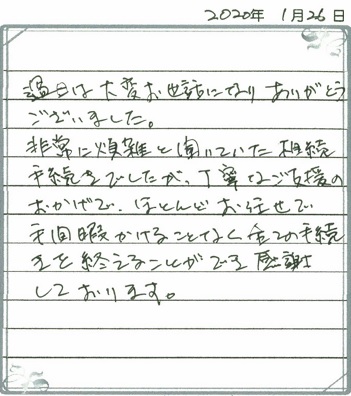 2020年 1月26日
過日は大変お世話になりありがとう
ございました。
非常に煩雑と聞いていた相続
手続きでしたが、丁寧なご支援の
おかげで、ほとんどお任せで
手間暇かけることなく全ての手続
きを終えることができ感謝
しております。